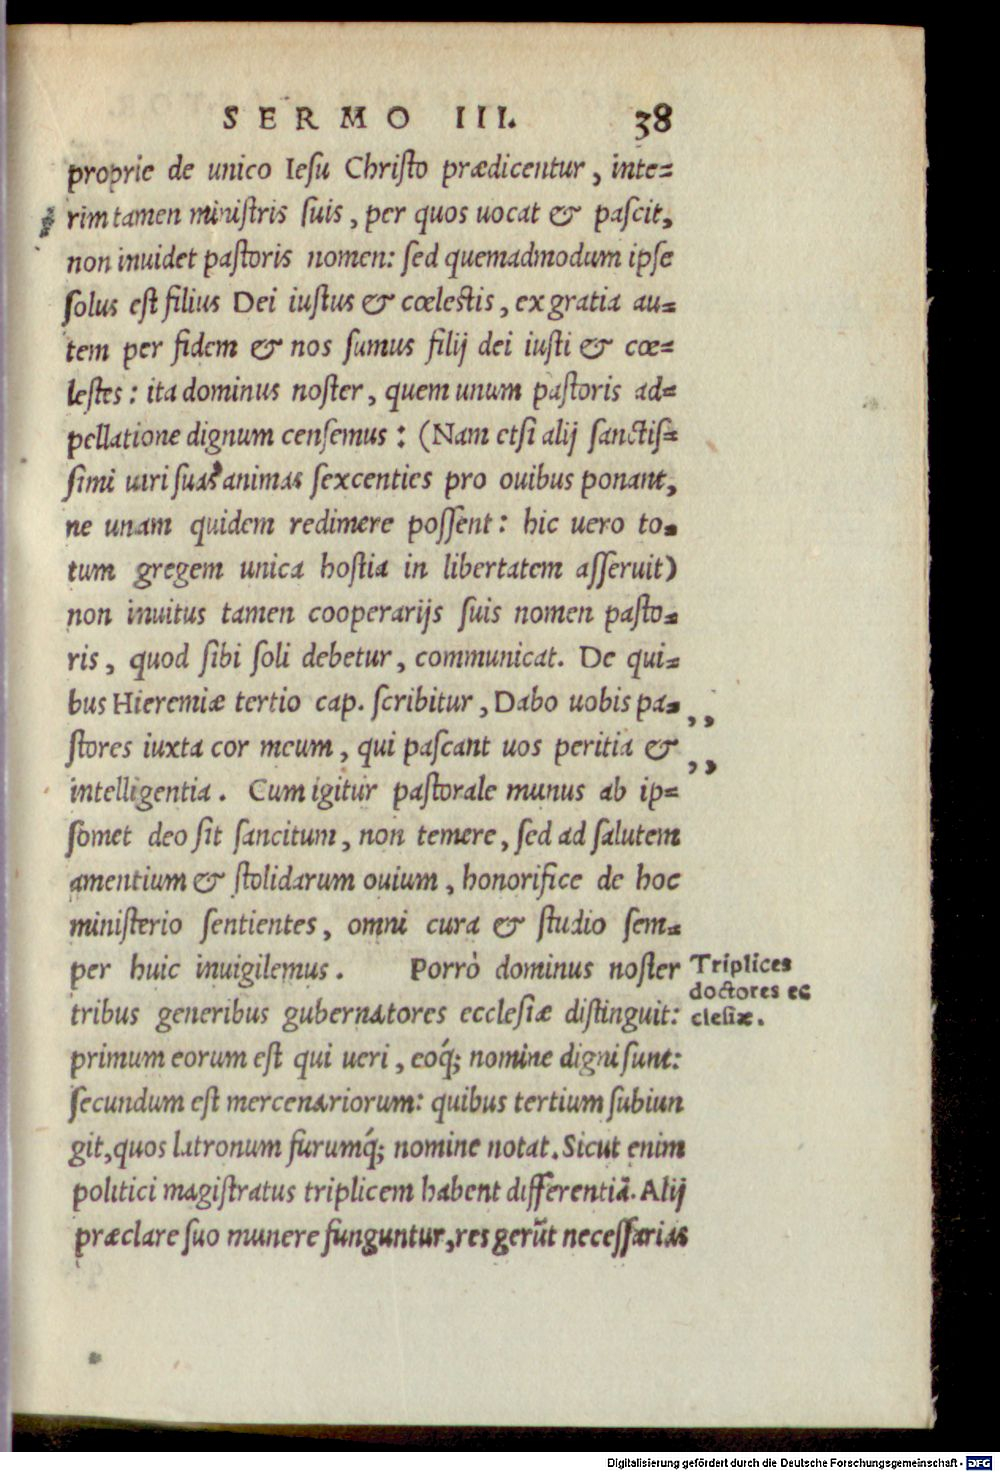 SERMO III. 38
proprie de unico Iesu Christo prædicentur, inte=
rim tamen ministris suis, per quos uocat & pascit,
non inuidet pastoris nomen: sed quemadmodum ipse
solus est filius Dei iustus & cœlestis, ex gratia au=
tem per fidem & nos sumus filij dei iusti & cœ=
lestes: ita dominus noster, quem unum pastoris ad=
pellatione dignum censemus: (Nam etsi alij sanctis=
simi uiri suas animas sexcenties pro ouibus ponant,
ne unam quidem redimere possent: hic uero to=
tum gregem unica hostia in libertatem asseruit)
non inuitus tamen cooperarijs suis nomen pasto=
ris, quod sibi soli debetur, communicat. De qui=
bus Hieremiæ tertio cap. scribitur, Dabo uobis pa= ,,
stores iuxta cor meum, qui pascant uos peritia & ,,
intelligentia. Cum igitur pastorale munus ab ip=
somet deo sit sancitum, non temere, sed ad salutem
amentium & stolidarum ouium, honorifice de hoc
ministerio sentientes, omni cura & studio sem=
per huic inuigilemus. Porrò dominus noster
tribus generibus gubernatores ecclesiæ distinguit:
primum eorum est qui ueri, eoq́; nomine digni sunt:
secundum est mercenariorum: quibus tertium subiun
git, quos latronum furumq́; nomine notat. Sicut enim
politici magistratus triplicem habent differentiã. Alij
præclare suo munere funguntur, res gerũt necessarias
Triplices
doctores ec
clesiæ.
Digitalisierung gefördert durch die Deutsche Forschungsgemeinschaft - DFG